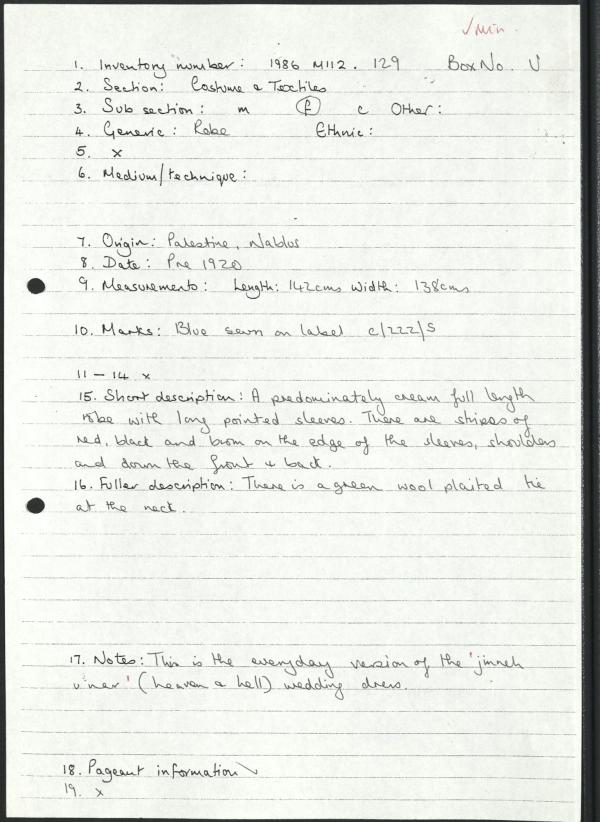 ✓ Min.
1. Inventory number: 1986 M112. 129 Box No. U
2. Section: Costume & Textiles
3. Sub section: m (f) c Other:
4. Generic: Robe Ethnic:
5. x
6. Medium/technique:
7. Origin: Palestine, Nablus
8. Date: Pre 1920
9. Measurements: Length: 142cms Width: 138cms
10. Marks: Blue sewn on label c/222/S
11 – 14 x
15. Short description: A predominately cream full length
robe with long pointed sleeves. There are stripes of
red, black and brown on the edge of the sleeves, shoulders
and down the front & back.
16. Fuller description: There is a green wool plaited tie
at the neck.
17. Notes: This is the everyday version of the 'jinneh
u'nar' (heaven & hell) wedding dress.
18. Pageant information \
19. x